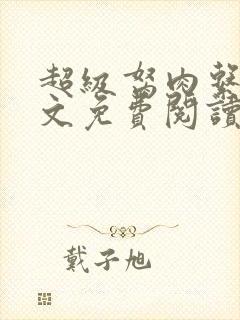 超級肉
文免費閱讀
戴子旭